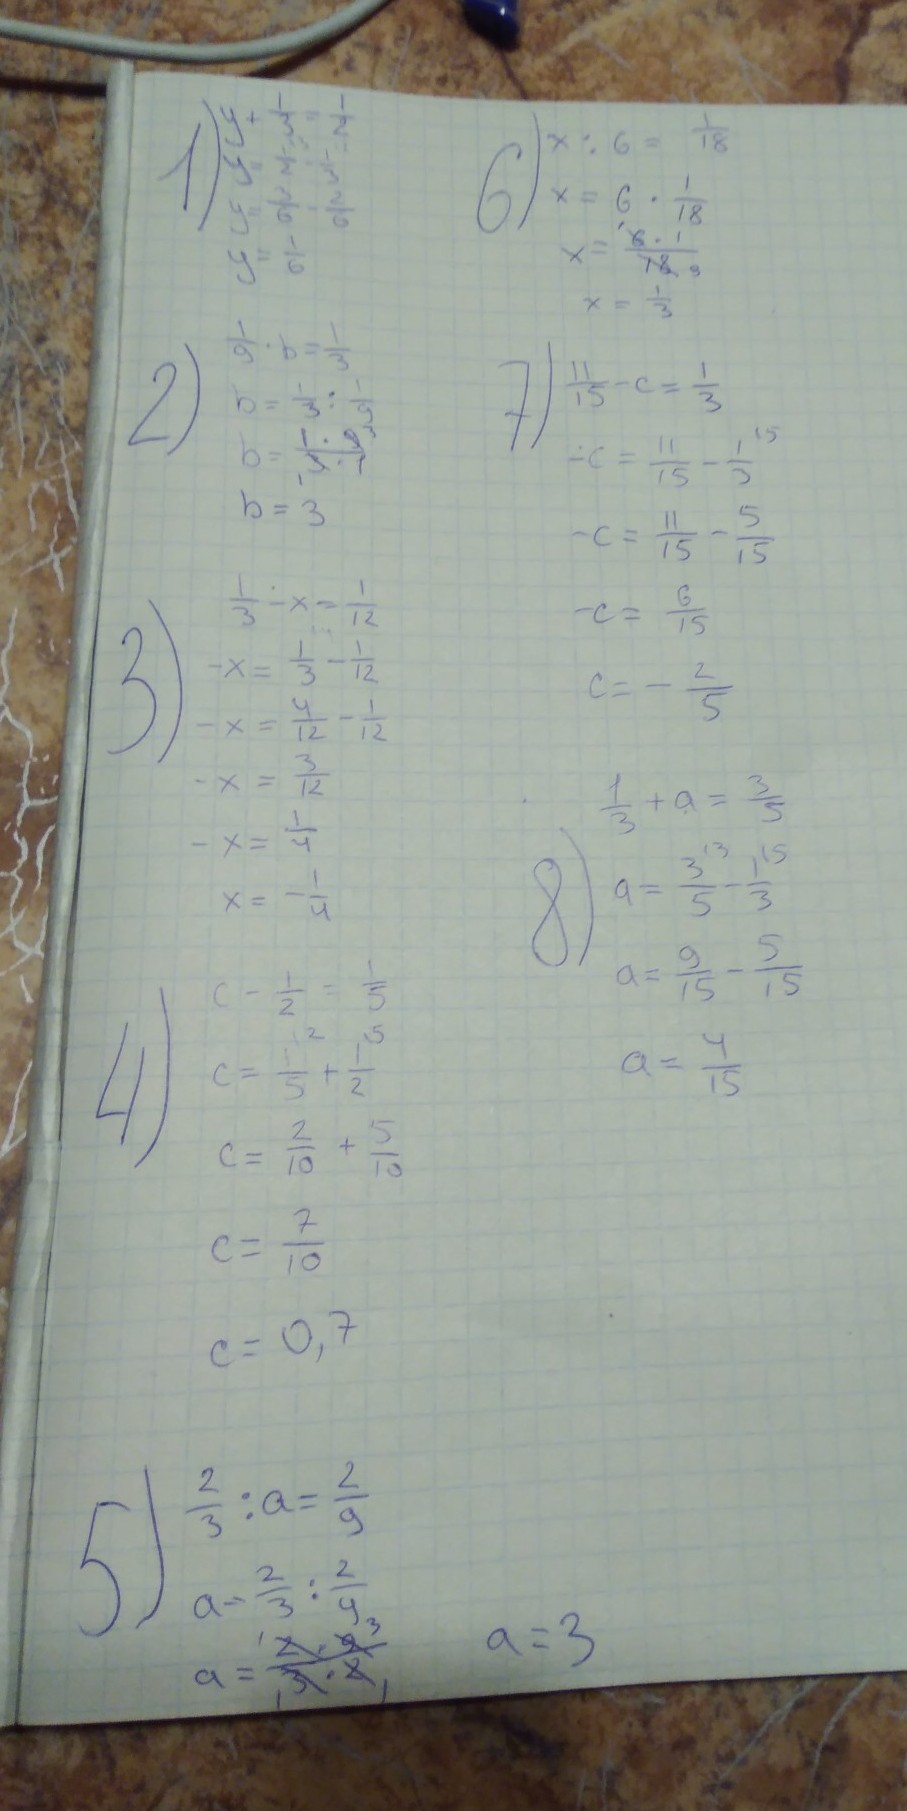 1)
2)
1/9 · b = 1/3
b = 1/3 : 1/9
b = 1 · 9 3 / 1 3 · 1
b = 3
3)
1/3 - x = 1/12
-x = 1/3 - 1/12
-x = 4/12 - 1/12
-x = 3/12
-x = 1/4
x = -1/4
4)
c - 1/2 = 1/5
c = 1/5 ² + 1/2 ⁵
c = 2/10 + 5/10
c = 7/10
c = 0,7
5)
2/3 : a = 2/9
a = 2/3 : 2/9
a = 1 2 · 9 3 / 1 3 · 2 1
a = 3
6)
x : 6 = 1/18
x = 6 · 1/18
x = 1 6 · 1 / 18 3
x = 1/3
7)
11/15 - c = 1/3
-c = 11/15 - 1/3 ⁾⁵
-c = 11/15 - 5/15
-c = 6/15
c = - 2/5
8)
1/3 + a = 3/5
a = 3/5 ⁾³ - 1/3 ⁾⁵
a = 9/15 - 5/15
a = 4/15